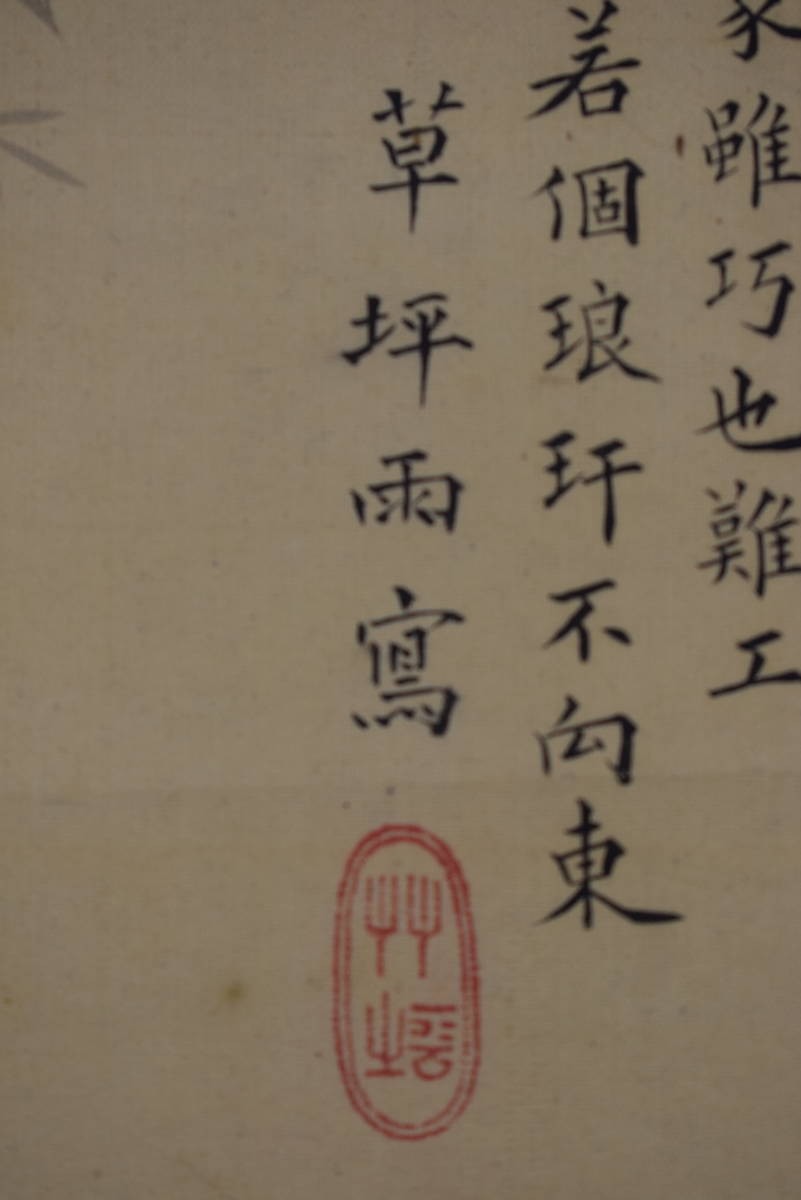 雖巧也難工
若個琅玕不向東
草坪雨寫
草坪